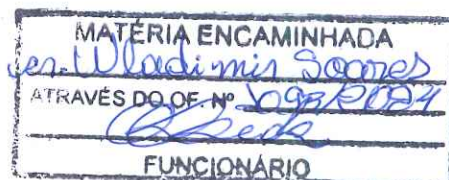 MATÉRIA ENCAMINHADA
Ver. Wladimir Soares
ATRAVÉS DO OF. Nº 1098/2024
FUNCIONÁRIO